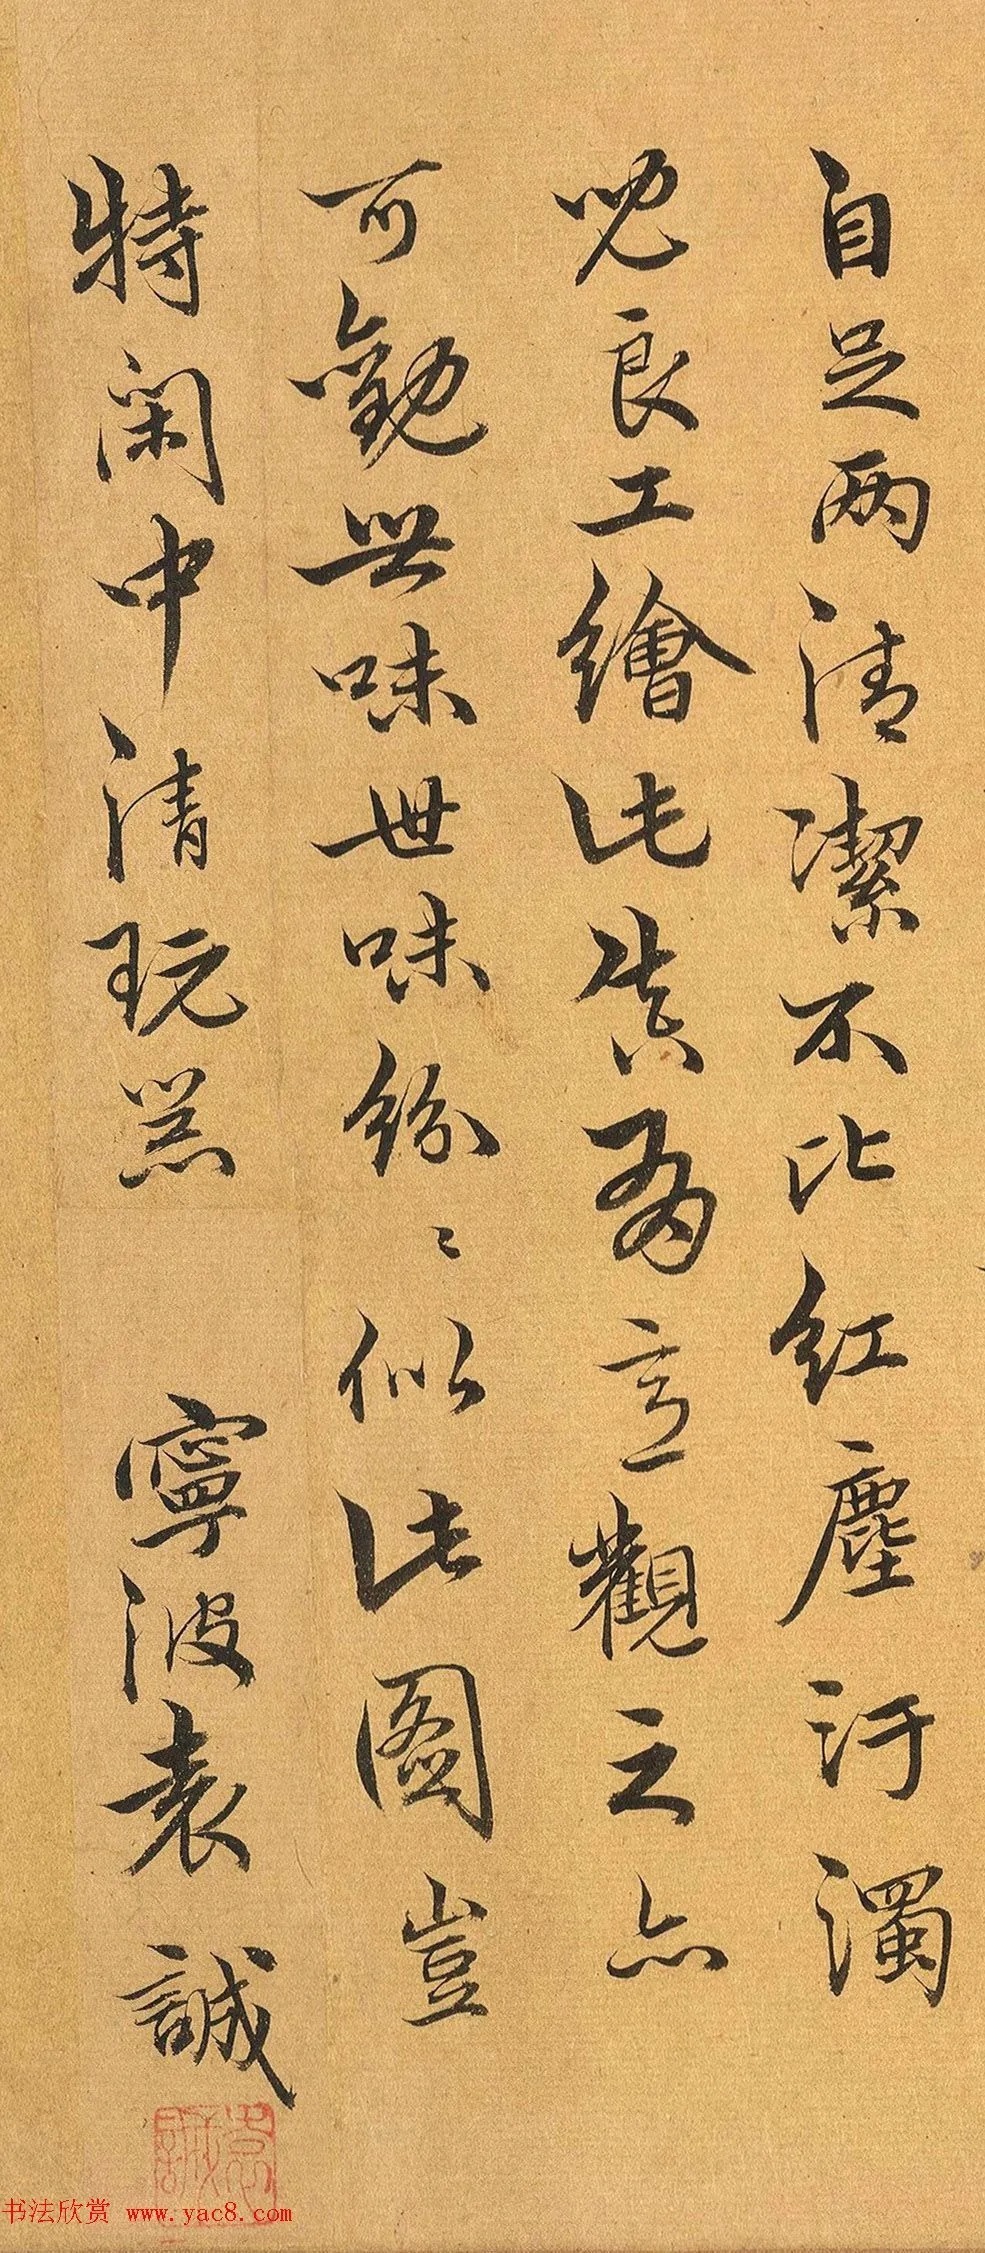 自足两清潔不比紅塵汙濁
況良工繪此真為意觀之亦
可勸世味世味紛〻似此圖豈
特閑中清玩器 寧波袁誠
书法欣赏 www.yac8.com